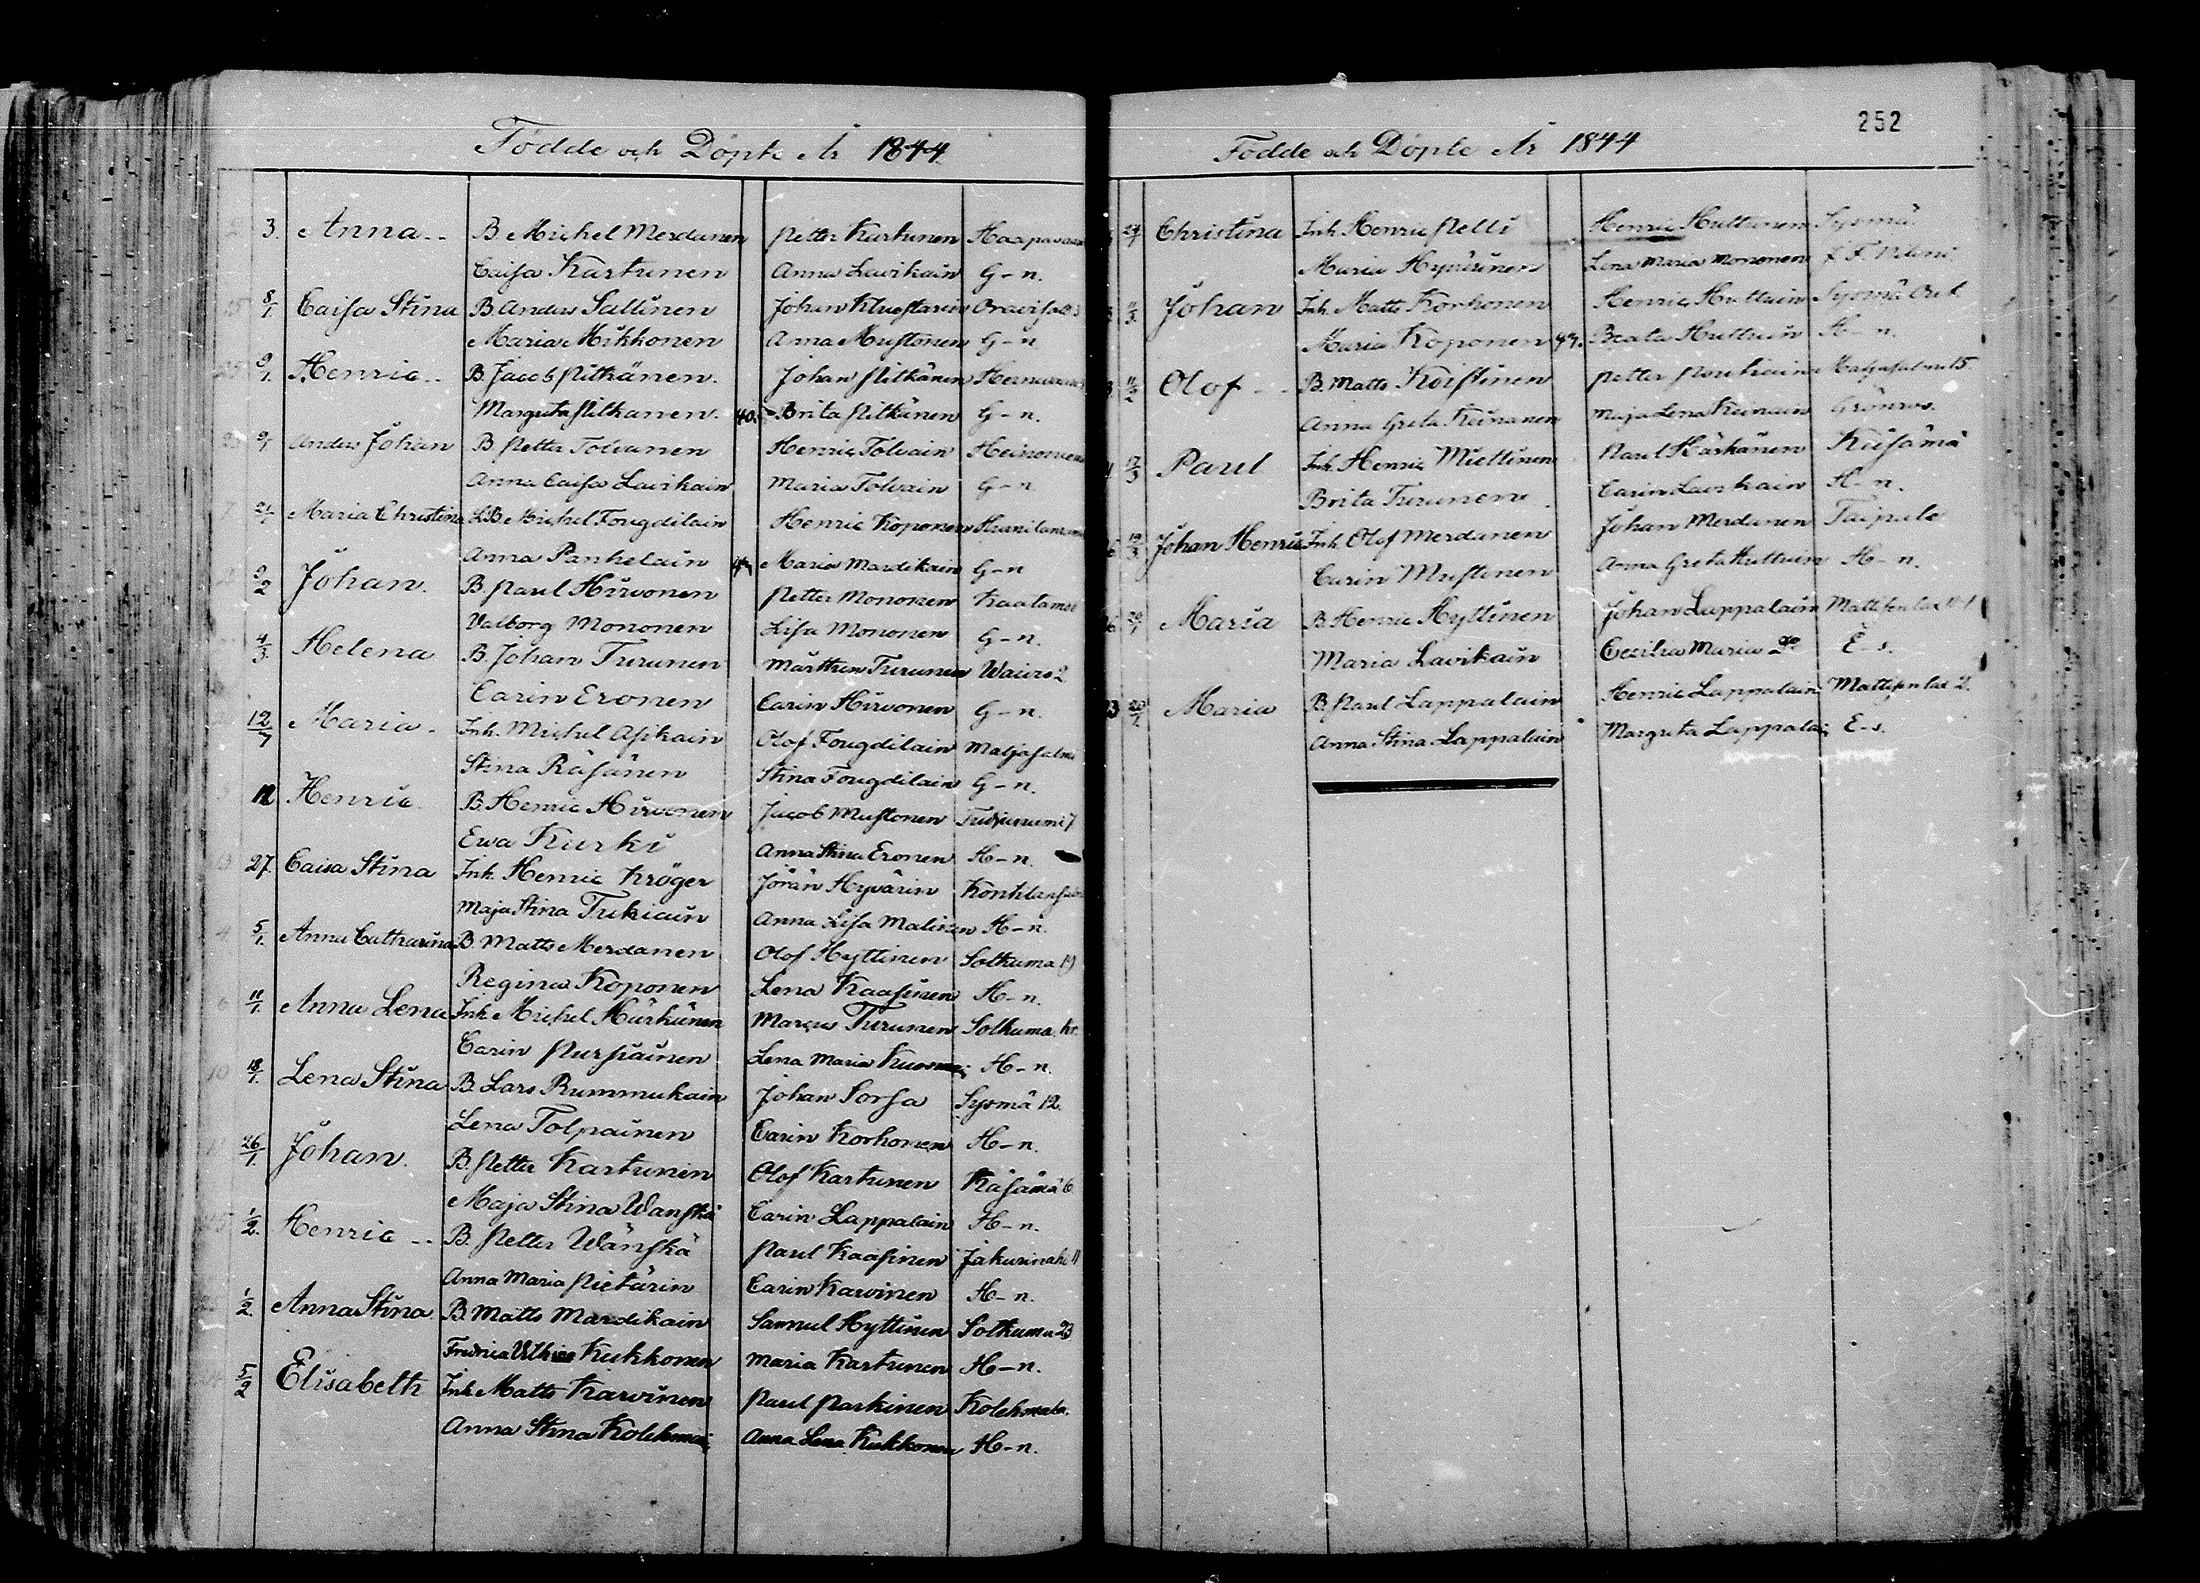 Födde och Döpte År 1844.
3. Anna.. B Michel Merdanen Petter Kartunen Haapavaara
Caisa Kartunen Anna Lavikain G-n.
8/1 Caisa Stina B. Anders Sallinen Johan
Maria Mikkonen Anna Mustonen G-n
9/1 Henric.. B. Jacob Pitkänen. Johan Pitkänen
Margreta Pitkänen. 40. Brita Pitkänen G-n.
9/1 Anders Johan B Petter Tolvanen Henric Tolvain
Anna Caisa Lavikain Maria Tolvain G-n
21/1 Maria Christina LB. Michel Fougdilain Henric Koponen
Anna Panhelain Maria Mardikain G-n
9/2 Johan. B. Paul Hirvonen Petter Mononen Kaatamo
Valborg Mononen Lisa Mononen G-n.
4/3. Helena B. Johan Turunen Mårthen Turunen Waivio 2
Carin Eronen Carin Hirvonen G-n.
12/7 Maria. Inh. Michel Asikain Olof Fougdilain Maljasalmi
Stina Räsänen Stina Fougdilain G-n.
12 Henric. B. Henric Hirvonen Jacob Mustonen
Ewa Kurki Anna Stina Eronen H-n.
27. Caisa Stina Inh. Henric Kröger Jöran Hyvärin
Maja Stina Tukiain Anna Lisa Malinen H-n.
5/1. Anna Catharina B. Matts Merdanen Olof Hyttinen Sotkuma 19
Regina Koponen Lena Kaasinen H-n.
11/1. Anna Lena Inh. Michel Härkänen Marcus Turunen Sotkuma
Carin Pursiainen Lena Maria H-n.
18/1. Lena Stina B. Lars Rummukain Johan Sorsa Sysmä 12.
Lena Tolpainen Carin Korhonen H-n.
26/1. Johan. B. Petter Kartunen Olof Kartunen Käsämä 6
Maja Stina Wanskä Carin Lappalain H-n.
1/2. Henric .. B. Petter Wänskä Paul Kaasinen 11
Anna Maria Pietärin Carin Karvinen H-n.
1/2. Anna Stina B. Matts Mardikain Samuel Hyttinen Sotkuma 23
Kukkonen Maria Kartunen H-n.
5/2 Elisabeth Inh. Matts Karvinen Paul Parkinen
Anna Stina Kolehmai Anna Lena Kukkonen H-n.
252
Födde och Döpte År 1844
Christina Inh. Henric Pelli Henric Huttunen Sysmä
Maria Hyvärinen Lena Maria Mononen
11/3. Johan Inh. Matts Korhonen Henric Huttuin Sysmä
Maria Koponen 44. Beata Huttuin H-n.
11/2 Olof B. Matts Koistinen Petter Maljasalmi 15
Anna Greta Keinänen Maja Lena Keinain
17/3 Paul Inh. Henric Miettinen Paul Härkänen Käsämä
Brita Turunen. Carin Lavikain H-n.
19/3. Johan Henric Inh. Olof Merdanen Johan Merdanen Taipale
Carin Mustonen Anna Greta Huttuin H-n.
Maria B. Henric Hyttinen Johan Lappalain
Maria Lavikain Cecilia Maria do E-s.
Maria B. Paul Lappalain Henric Lappalain
Anna Stina Lappalain Margreta Lappalai E-s.